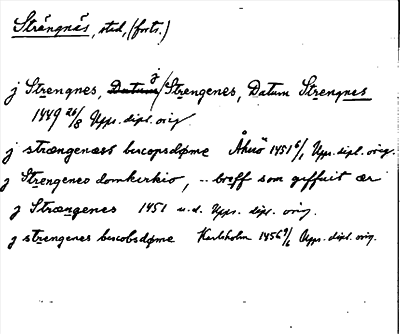 Strängnäs, sted, (forts.)
j Strengnes, Datum j Strengenes, Datum Strengnes
1449 26/8 Upps. dipl. orig.
j strængenæss bscopsdøme Åhus 1451 6/1 Upps. dipl. orig.
j Strengenes domkirkio, .. breff som giffuit ær
j Strængenes 1451 u.d. Upps. dipl. orig.
j strengenes bscobsdøme Karlsholm 1456 9/6 Upps. dipl. orig.